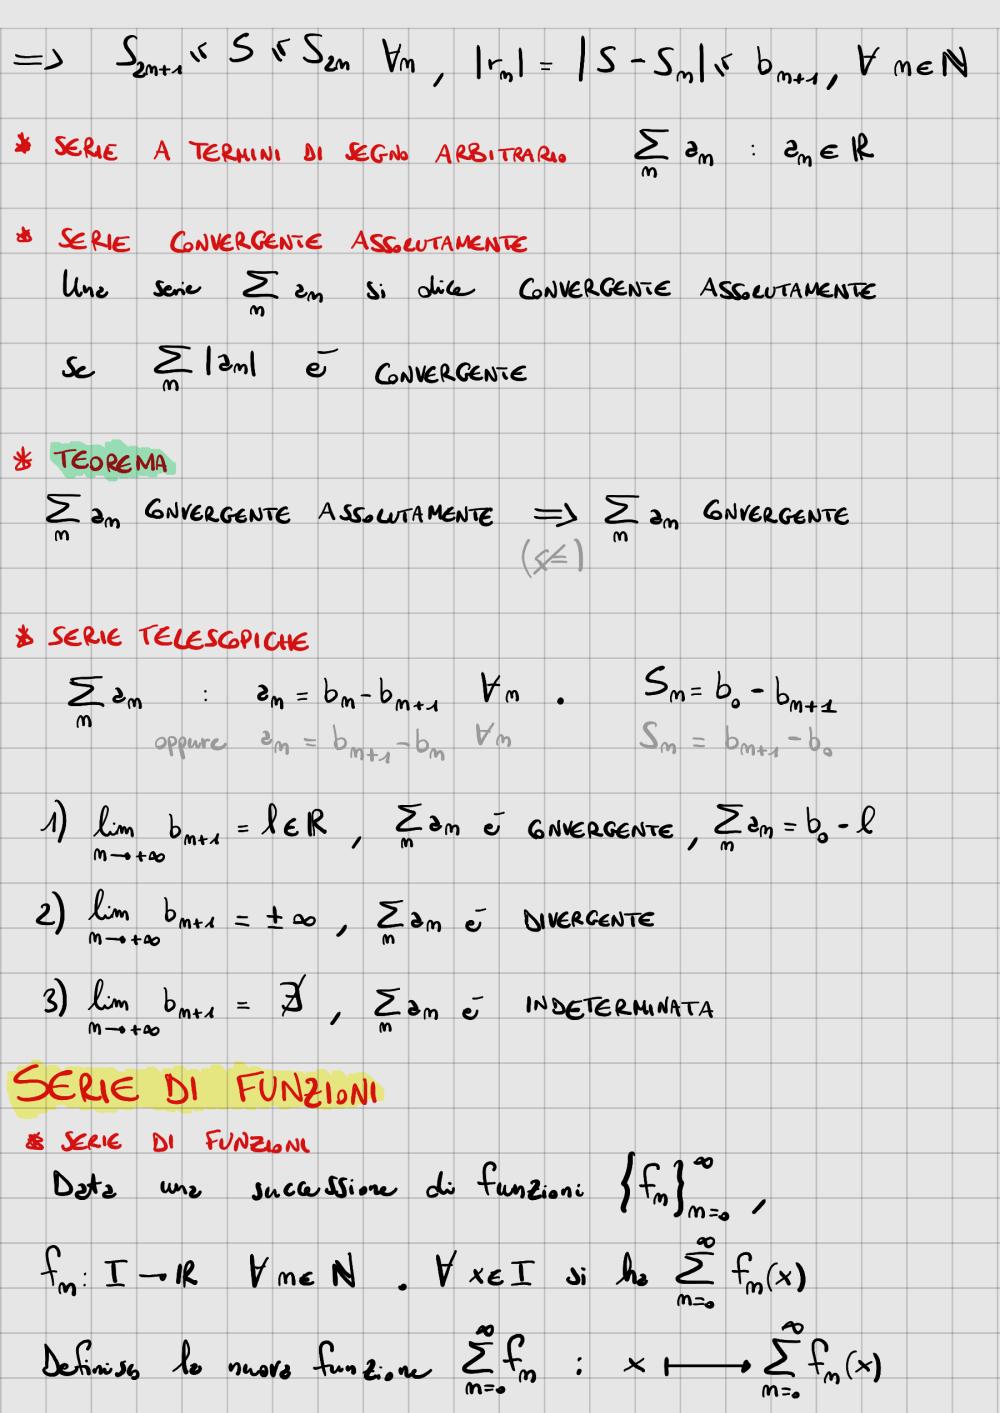 => S_{2n+1} ≤ S ≤ S_{2n} ∀n , |r_n| = |S - S_n| ≤ b_{n+1}, ∀ n∈ℕ
* SERIE A TERMINI DI SEGNO ARBITRARIO ∑_n a_n : a_n ∈ ℝ
* SERIE CONVERGENTE ASSOLUTAMENTE
Una serie ∑_n a_n si dice CONVERGENTE ASSOLUTAMENTE
se ∑_n |a_n| è CONVERGENTE
* TEOREMA
∑_n a_n CONVERGENTE ASSOLUTAMENTE => ∑_n a_n CONVERGENTE
(⇍)
* SERIE TELESCOPICHE
∑_n a_n : a_n = b_n - b_{n+1} ∀n . S_n = b_0 - b_{n+1}
oppure a_n = b_{n+1} - b_n ∀n S_n = b_{n+1} - b_0
1) lim_{n→+∞} b_{n+1} = l ∈ ℝ , ∑_n a_n è CONVERGENTE , ∑_n a_n = b_0 - l
2) lim_{n→+∞} b_{n+1} = ±∞ , ∑_n a_n è DIVERGENTE
3) lim_{n→+∞} b_{n+1} = ∄ , ∑_n a_n è INDETERMINATA
SERIE DI FUNZIONI
* SERIE DI FUNZIONI
Data una successione di funzioni {f_n}_{n=0}^∞ ,
f_n : I → ℝ ∀ n∈ℕ . ∀ x∈I si ha ∑_{n=0}^∞ f_n(x)
Definisco la nuova funzione ∑_{n=0}^∞ f_n : x ⟼ ∑_{n=0}^∞ f_n(x)